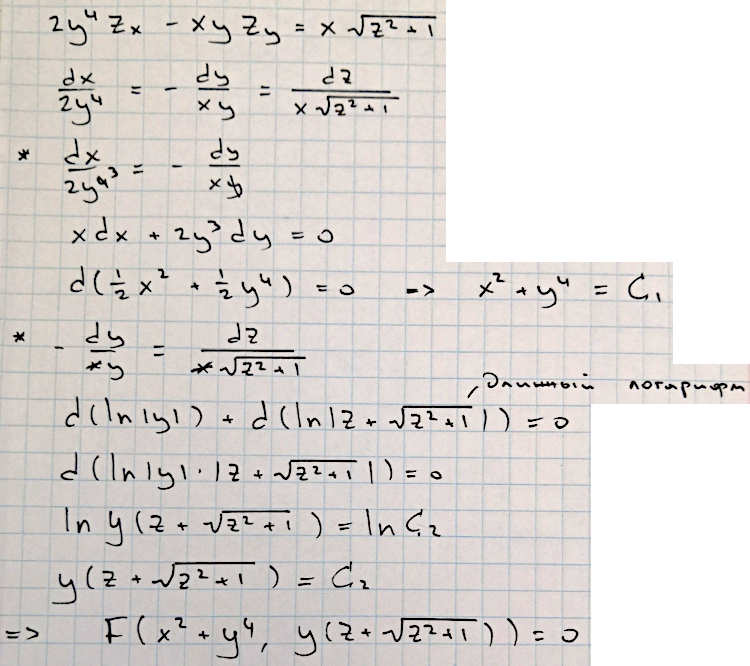 2y⁴ Zx - xy Zy = x √(z² + 1)
dx/2y⁴ = - dy/xy = dz/(x √(z² + 1))
* dx/2y⁴³ = - dy/xy
x dx + 2y³ dy = 0
d(½ x² + ½ y⁴) = 0 -> x² + y⁴ = C₁
* - dy/xy = dz/(x √(z² + 1))
длинный логарифм
d(ln|y|) + d(ln|z + √(z² + 1)|) = 0
d(ln|y|·|z + √(z² + 1)|) = 0
ln y(z + √(z² + 1)) = ln C₂
y(z + √(z² + 1)) = C₂
=> F(x² + y⁴, y(z + √(z² + 1))) = 0